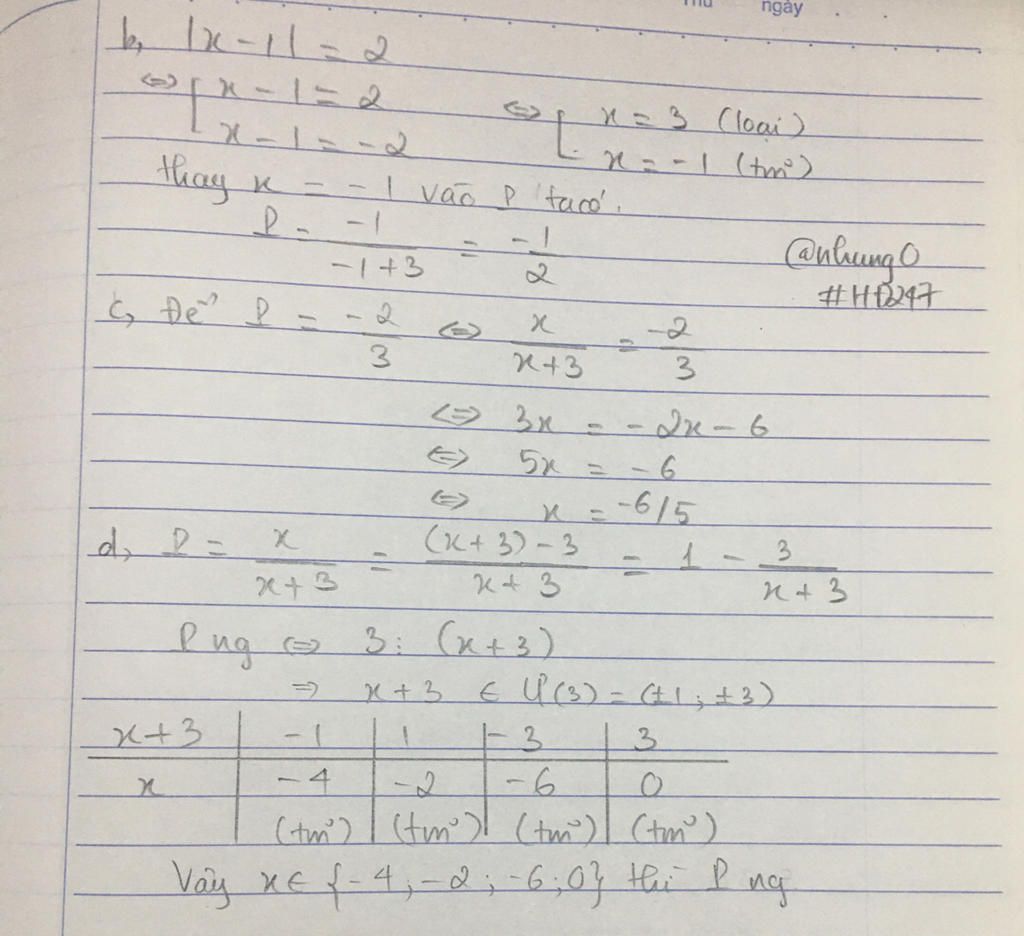 Thứ ngày
b, |x-1| = 2
⇔ [ x - 1 = 2 ⇔ [ x = 3 (loại)
x - 1 = -2 x = -1 (tm²)
thay x = -1 vào P ta có.
P = -1/(-1+3) = -1/2
@nhung0
#HĐ247
c, Để P = -2/3 ⇔ x/(x+3) = -2/3
⇔ 3x = -2x - 6
⇔ 5x = -6
⇔ x = -6/5
d, P = x/(x+3) = ((x+3)-3)/(x+3) = 1 - 3/(x+3)
P ng ⇔ 3 ⋮ (x+3)
⇒ x+3 ∈ Ư(3) = (±1; ±3)
x+3 | -1 | 1 | -3 | 3
x | -4 | -2 | -6 | 0
(tm²) | (tm²) | (tm²) | (tm²)
Vậy x ∈ {-4; -2; -6; 0} thì P ng